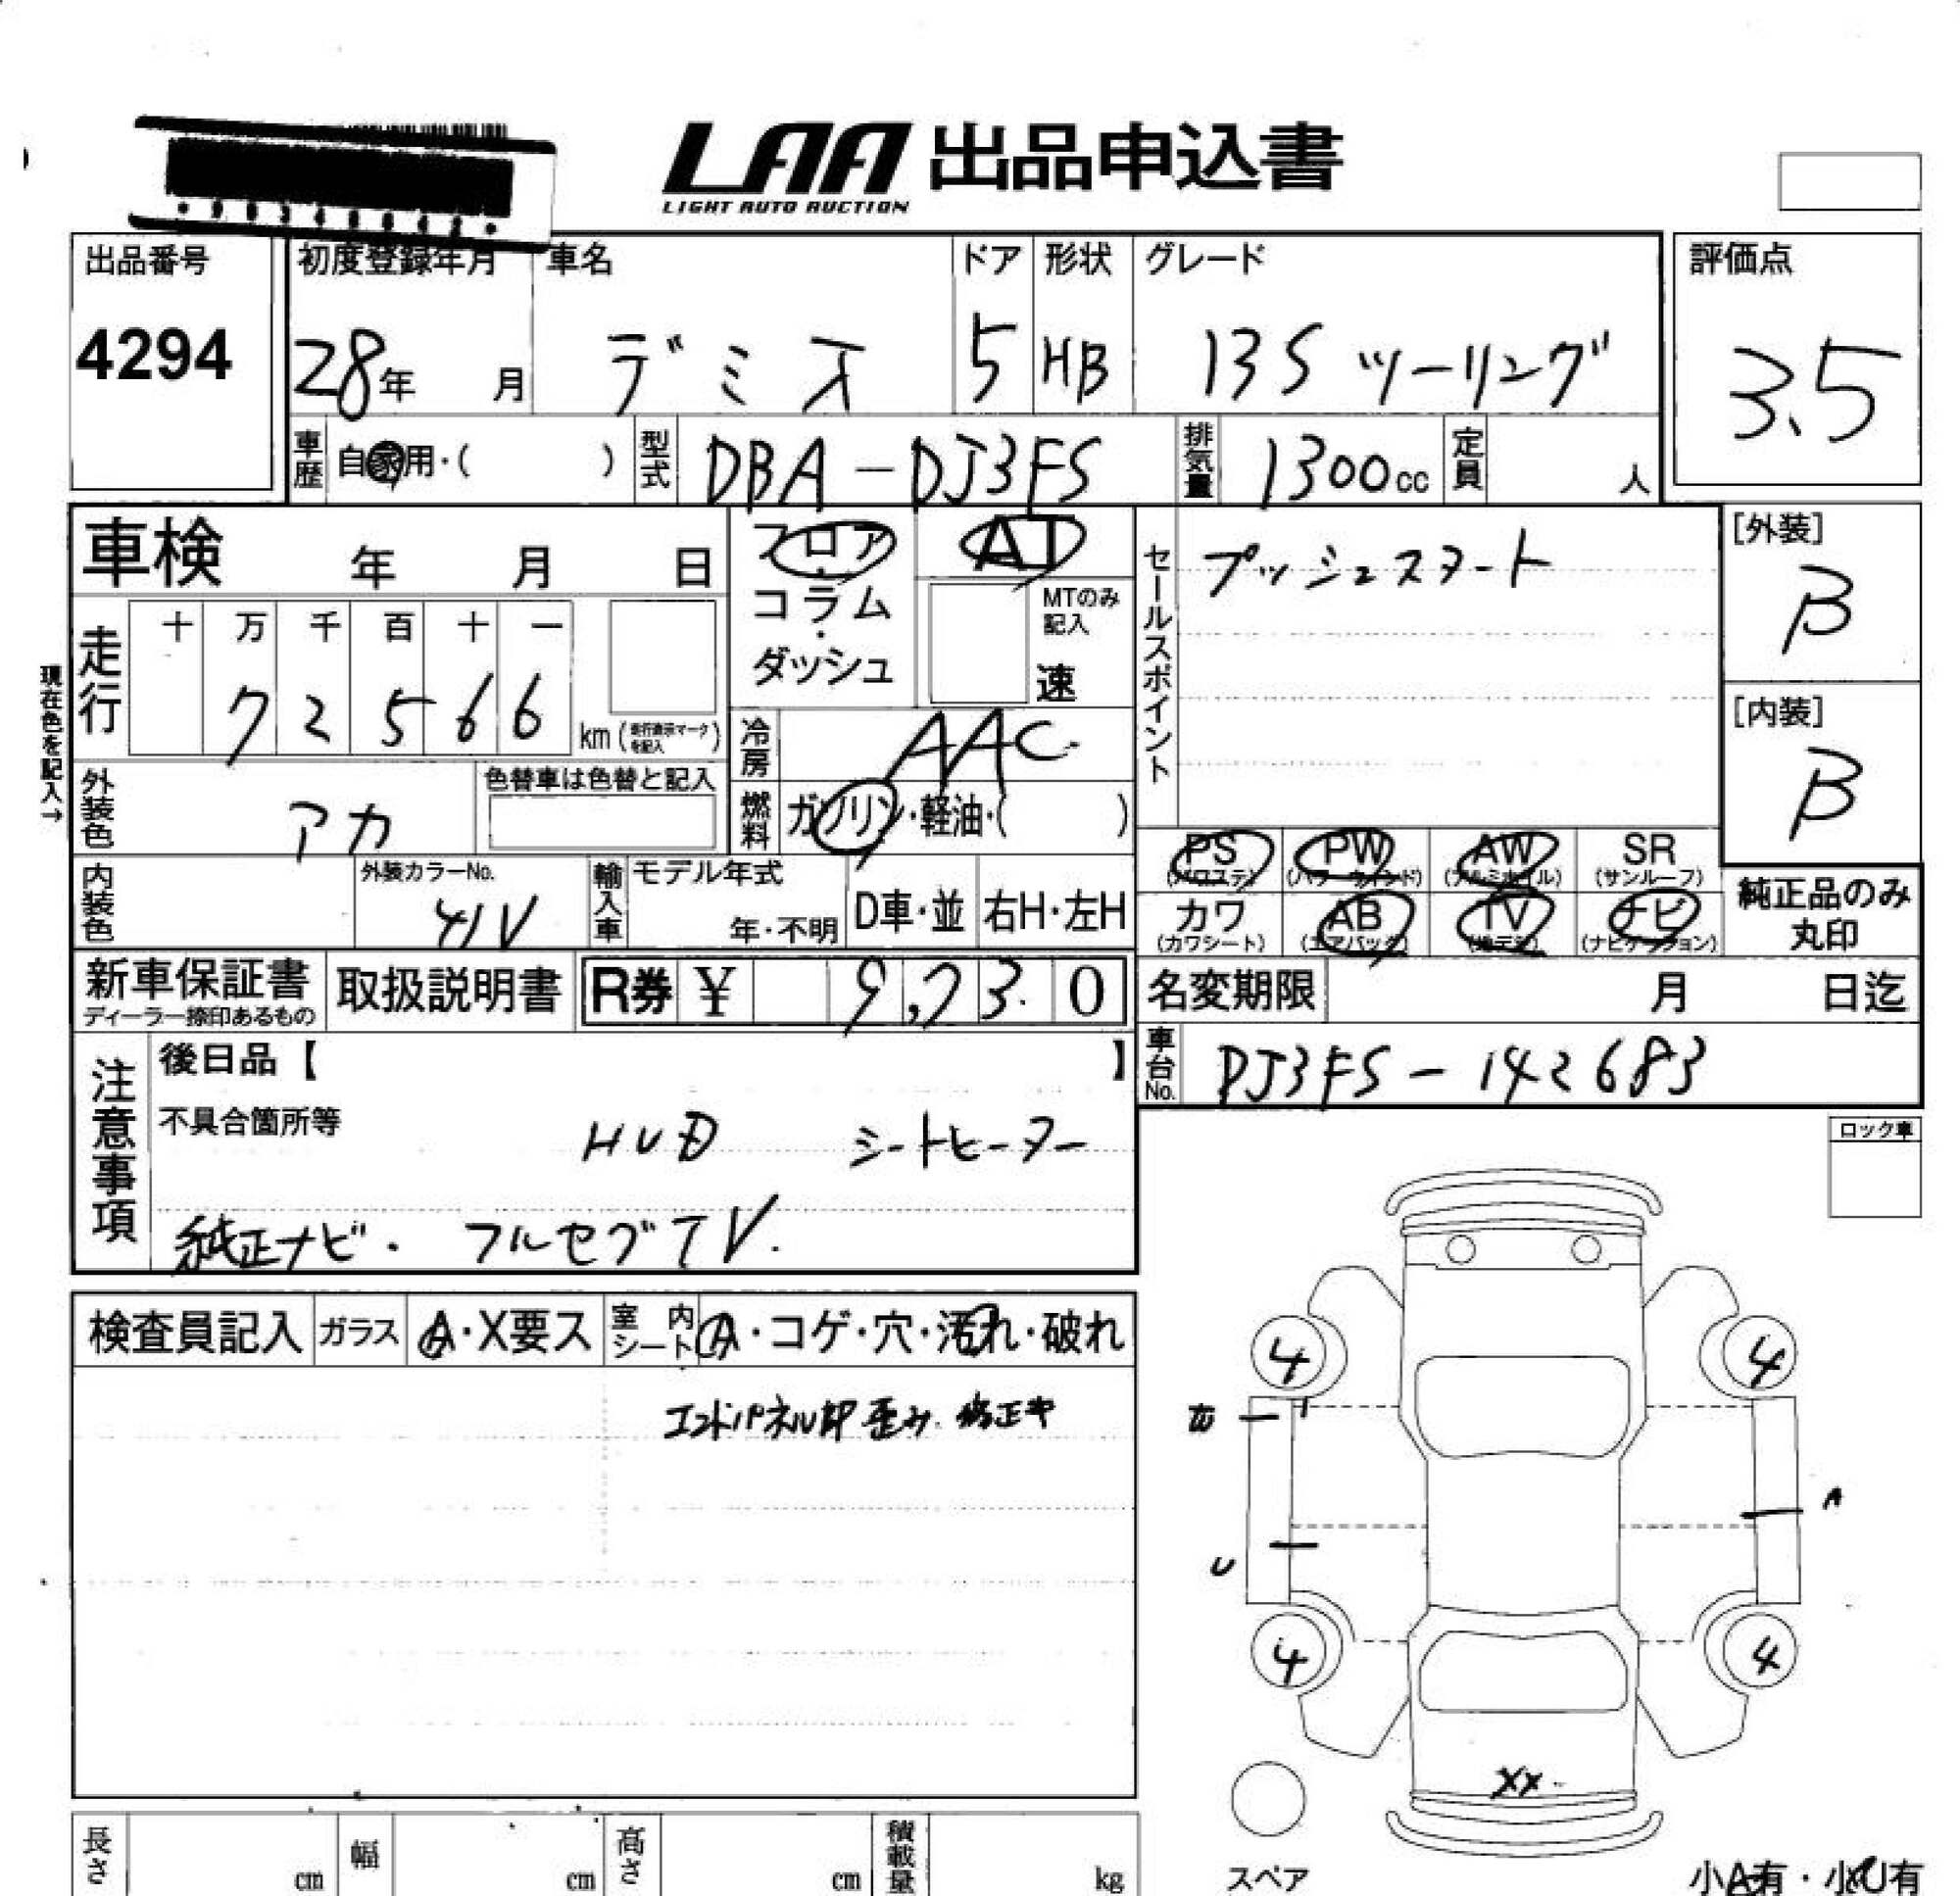 LAA 出品申込書
LIGHT AUTO AUCTION
出品番号 初度登録年月 車名 ドア 形状 グレード 評価点
4294 28年 月 デミオ 5 HB 13S ツーリング 3.5
車歴 自家用・( ) 型式 DBA-DJ3FS 排気量 1300cc 定員 人
車検 年 月 日 フロア・コラム・ダッシュ AT
MTのみ記入 速
セールスポイント プッシュスタート
[外装] B
[内装] B
現在色を記入→
走行 十 万 千 百 十 一
7 2 5 6 6 km (走行表示マークを記入)
冷房 AAC
外装色 アカ 色替車は色替と記入
燃料 ガソリン・軽油・( )
PS (パワステ) PW (パワーウィンド) AW (アルミホイル) SR (サンルーフ)
カワ (カワシート) AB (エアバック) TV (地デジ) ナビ (ナビゲーション)
純正品のみ丸印
内装色 外装カラーNo. 41V 輸入車 モデル年式 年・不明 D車・並 右H・左H
新車保証書 ディーラー捺印あるもの 取扱説明書 R券 ¥ 9,730
名変期限 月 日迄
車台No. DJ3FS-142683
注意事項 後日品【 】
不具合箇所等 HUD シートヒーター
純正ナビ. フルセグTV.
ロック車
検査員記入 ガラス A・X要ス 室内シート A・コゲ・穴・汚れ・破れ
エンドパネル部歪み 修正中
4 4
A
U
4 4
XX
スペア
長さ cm 幅 cm 高さ cm 積載量 kg
小A有・小U有